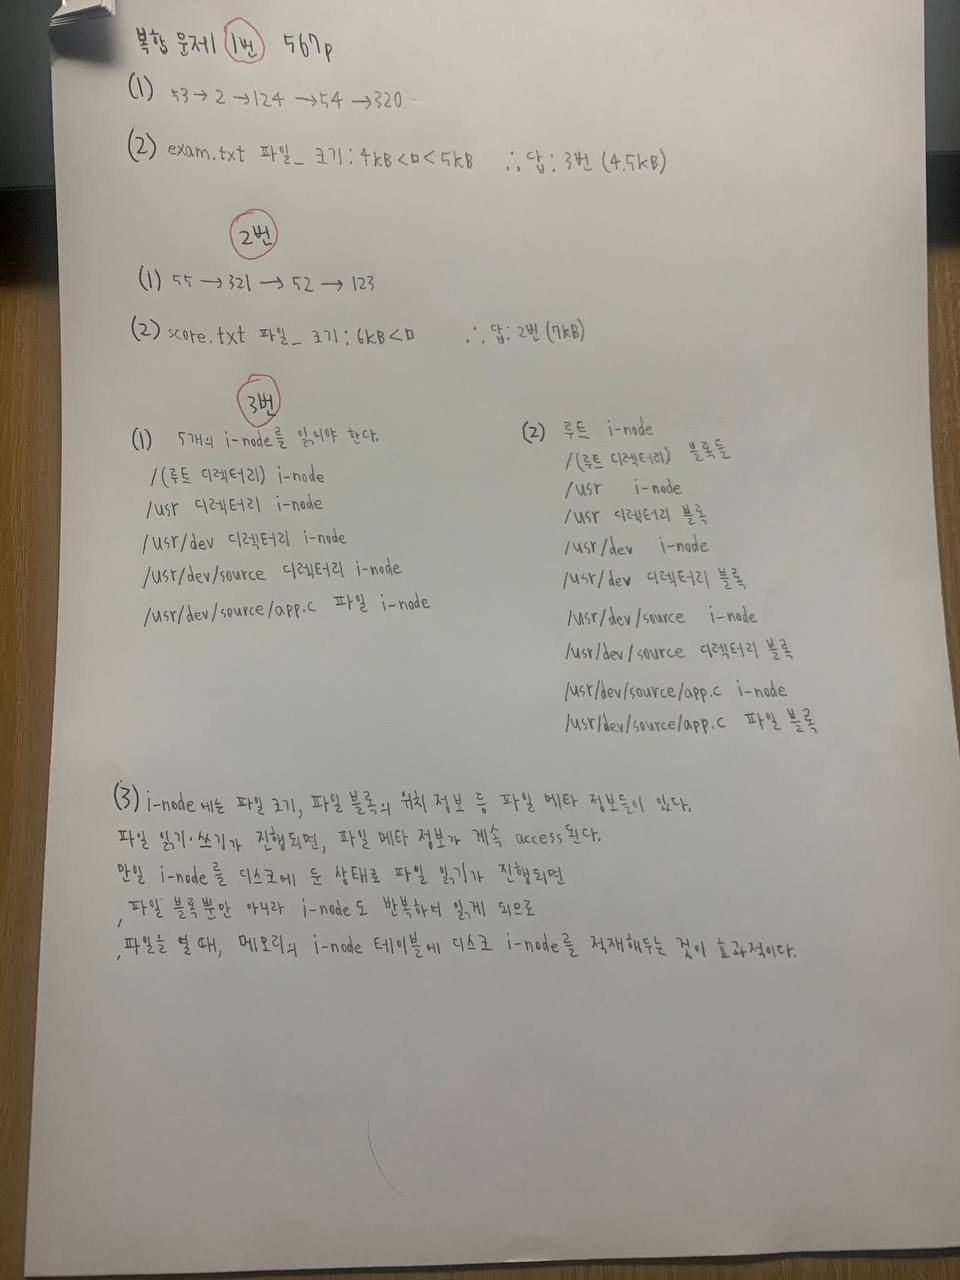 복합 문제 1번 567p
(1) 53→2→124→54→320
(2) exam.txt 파일_ 크기: 4kB<ㅁ<5kB ∴답: 3번 (4.5kB)
2번
(1) 55→321→52→123
(2) score.txt 파일_ 크기: 6kB<ㅁ ∴답: 2번 (7kB)
3번
(1) 5개의 i-node를 읽어야 한다.
/(루트 디렉터리) i-node
/usr 디렉터리 i-node
/usr/dev 디렉터리 i-node
/usr/dev/source 디렉터리 i-node
/usr/dev/source/app.c 파일 i-node
(2) 루트 i-node
/(루트 디렉터리) 블록들
/usr i-node
/usr 디렉터리 블록
/usr/dev i-node
/usr/dev 디렉터리 블록
/usr/dev/source i-node
/usr/dev/source 디렉터리 블록
/usr/dev/source/app.c i-node
/usr/dev/source/app.c 파일 블록
(3) i-node에는 파일 크기, 파일 블록의 위치 정보 등 파일 메타 정보들이 있다.
파일 읽기·쓰기가 진행되면, 파일 메타 정보가 계속 access된다.
만일 i-node를 디스크에 둔 상태로 파일 읽기가 진행되면
, 파일 블록뿐만 아니라 i-node도 반복하여 읽게 되므로
, 파일을 열 때, 메모리의 i-node 테이블에 디스크 i-node를 적재해두는 것이 효과적이다.